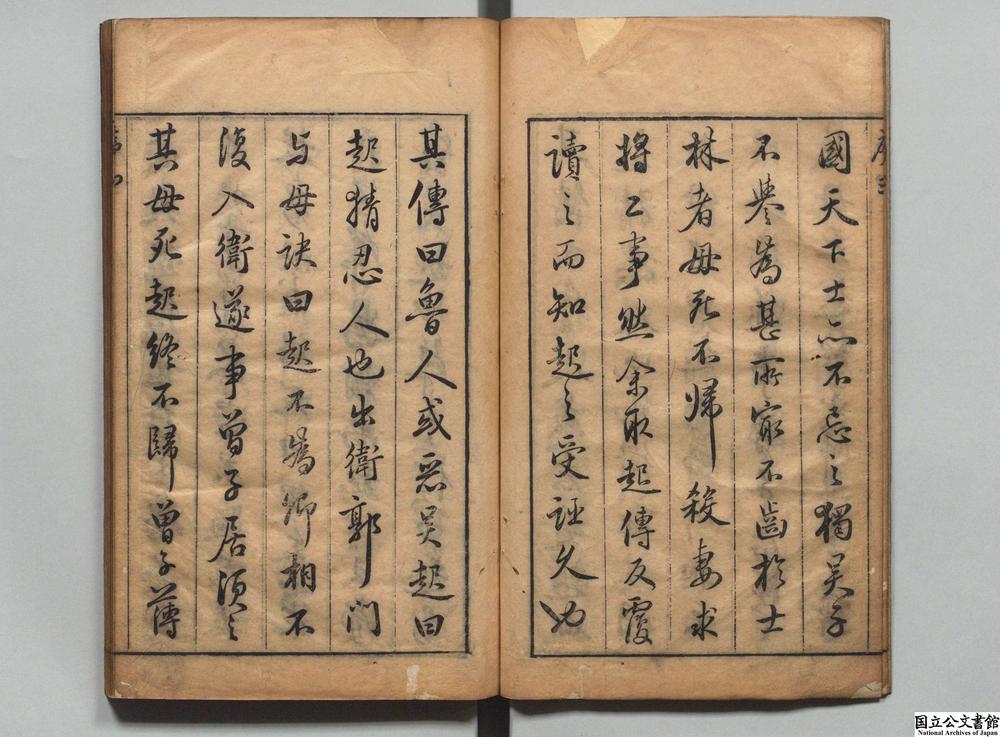 國天下士亦不忌之獨吳子
不譽爲甚所最不齒於士
林者母死不歸殺妻求
將二事然余取起傳反覆
讀之而知起之受誣久也
其傳曰魯人或惡吳起曰
起猜忍人也出衛郭門
与母訣曰起不爲卿相不
復入衛遂事曾子居須之
其母死起終不歸曾子薄
国立公文書館
National Archives of Japan